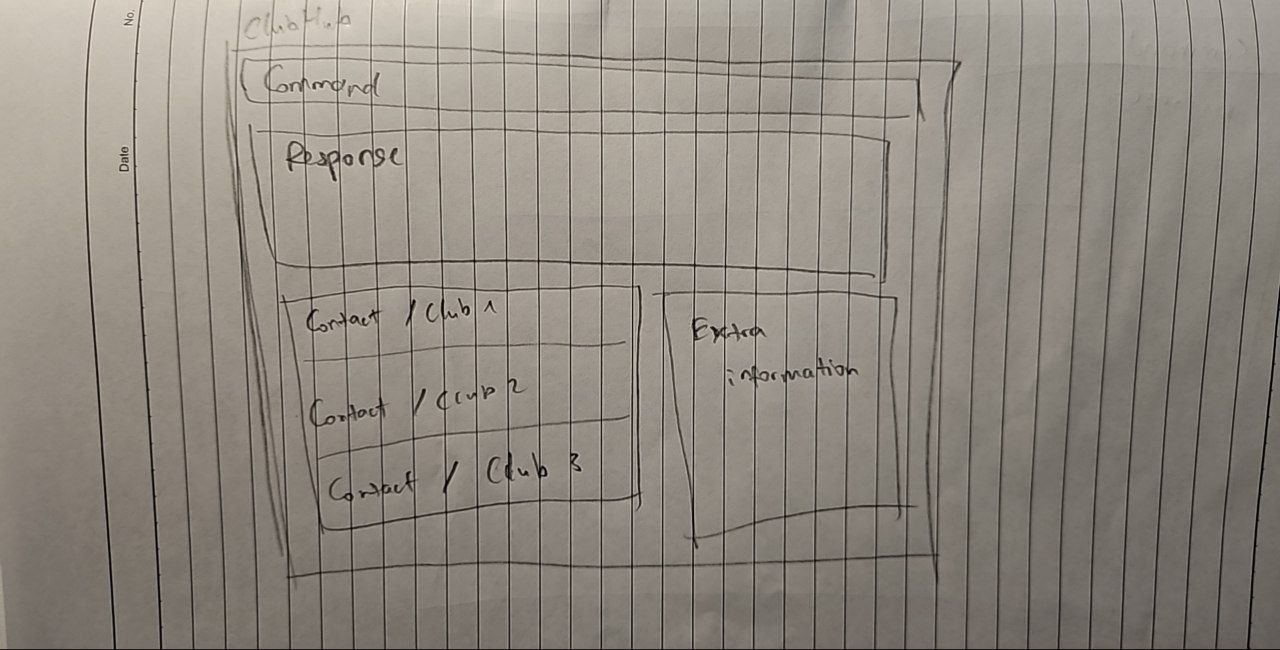 No.
Date
ClubHub
Command
Response
Contact / Club 1
Contact / Club 2
Contact / Club 3
Extra
information